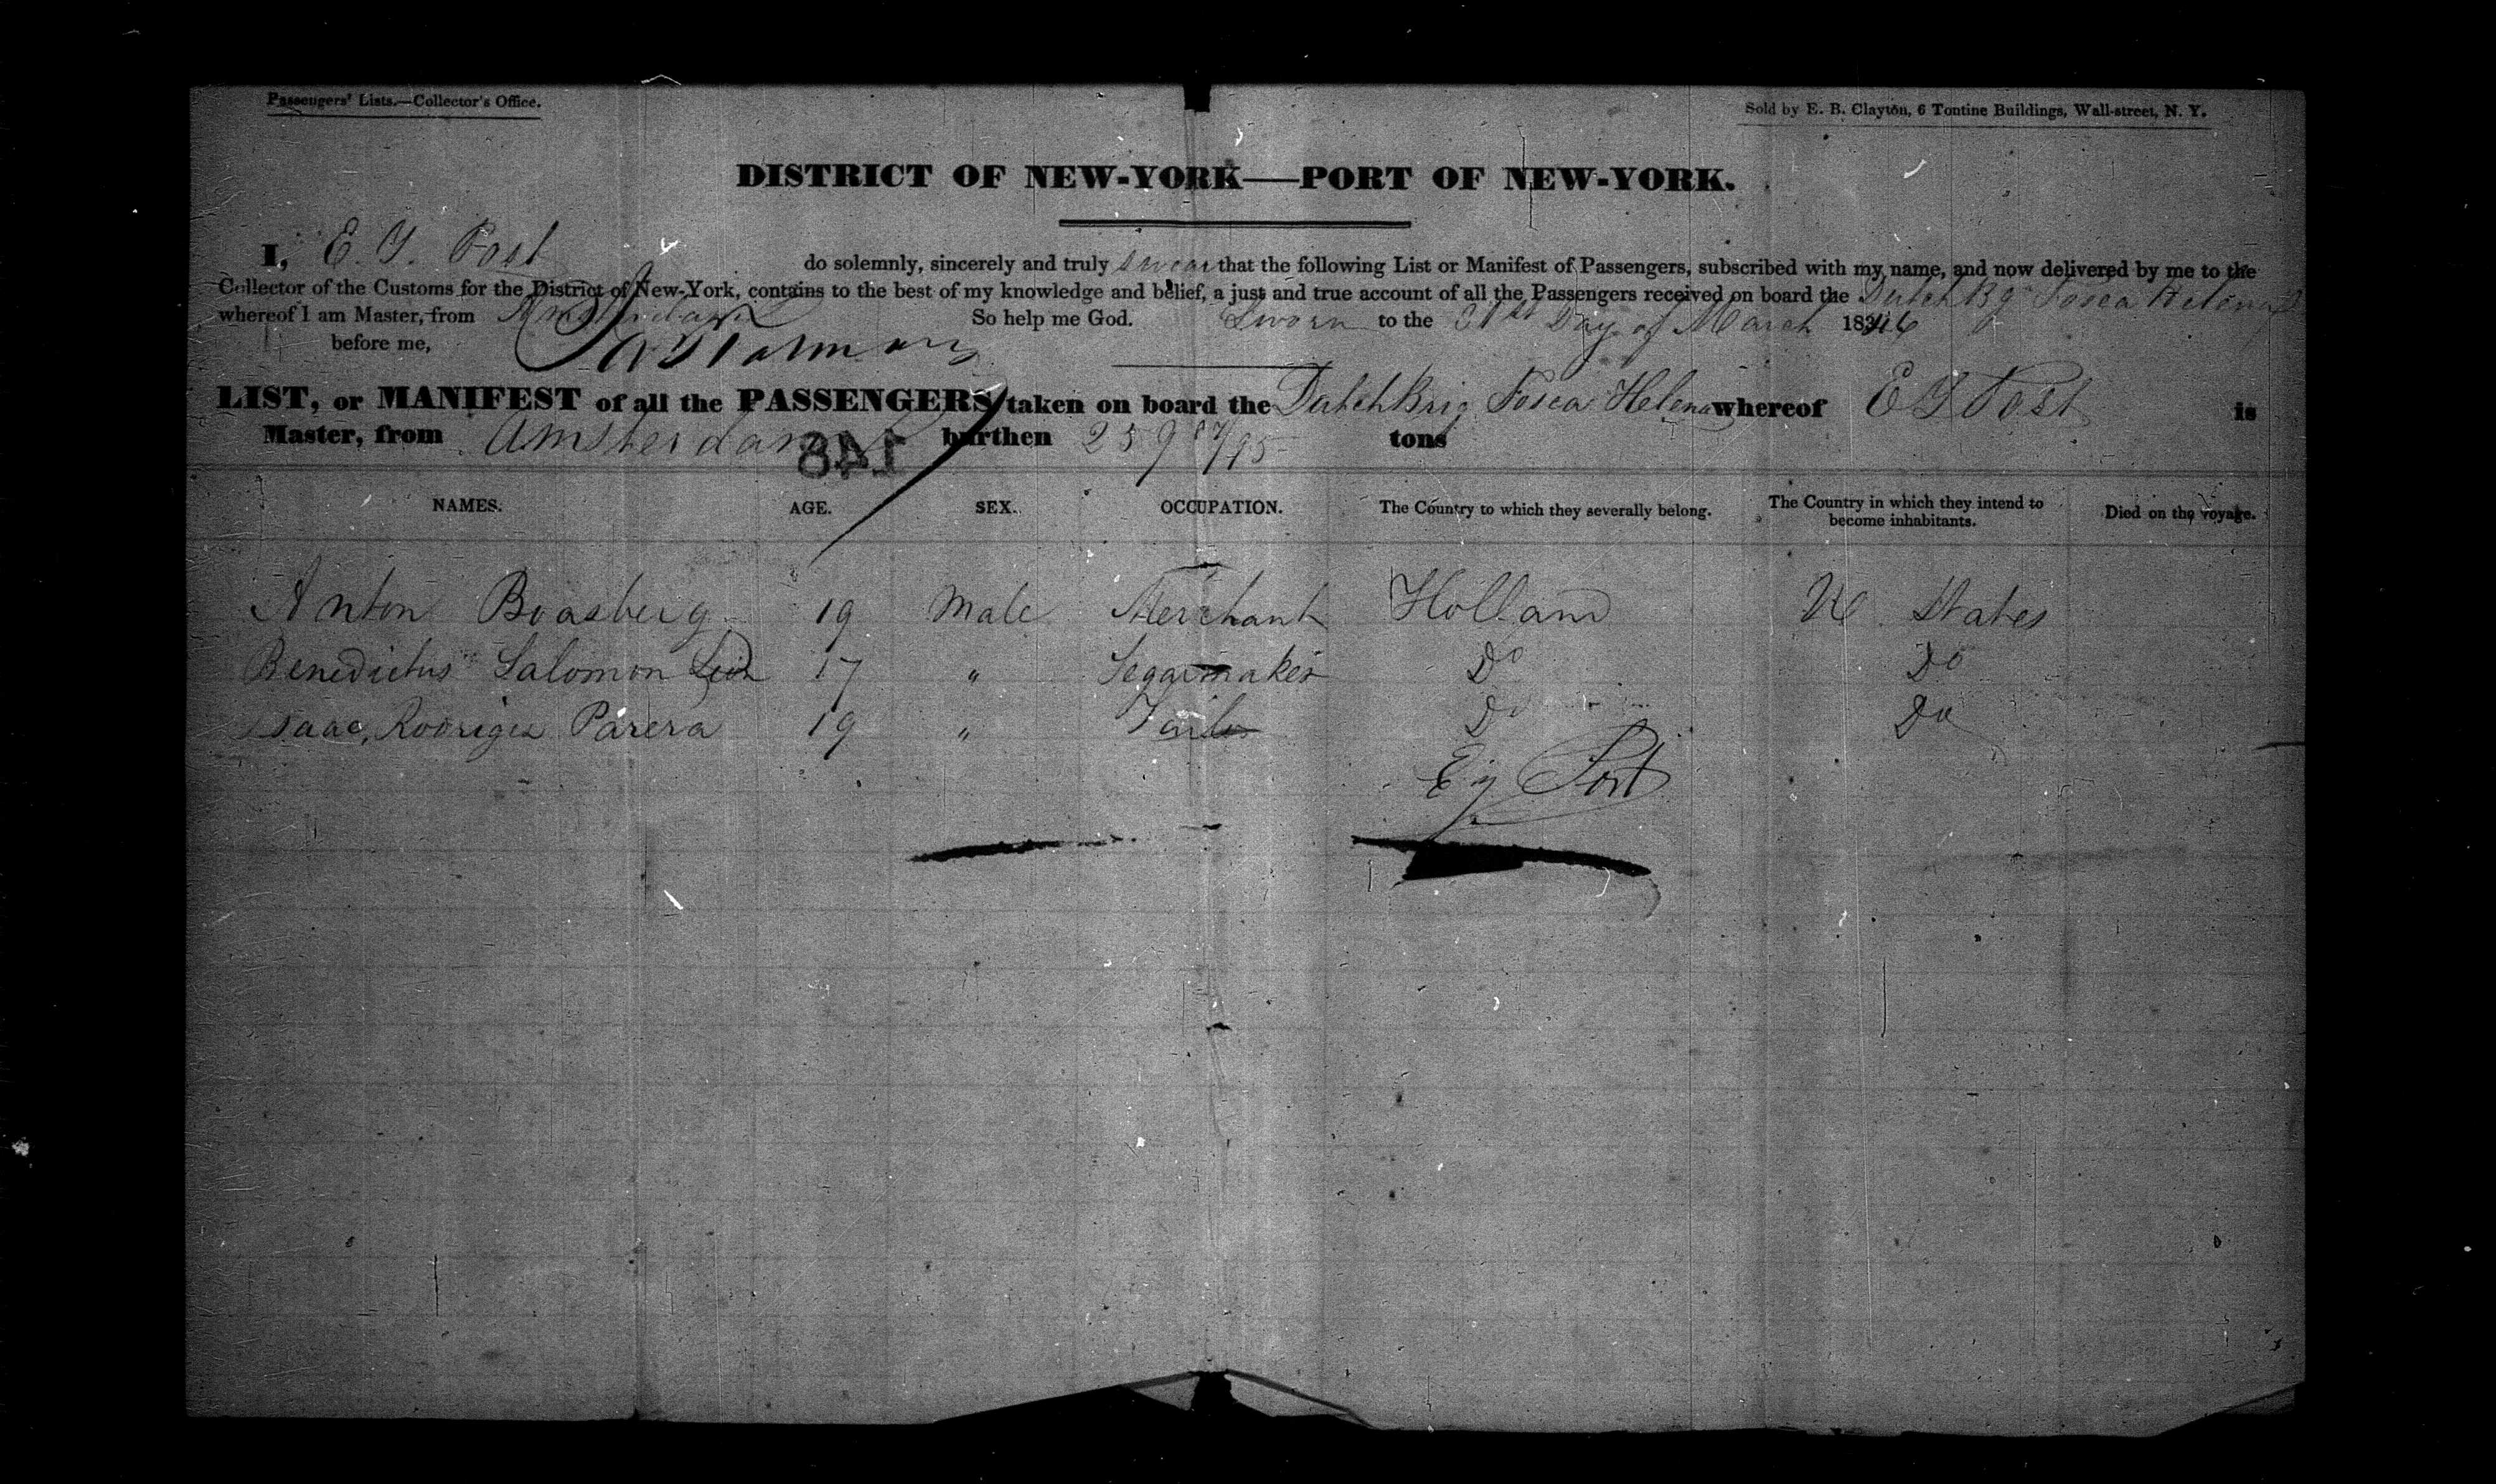 Passengers' Lists.—Collector's Office.
Sold by E. B. Clayton, 6 Tontine Buildings, Wall-street, N. Y.
DISTRICT OF NEW-YORK—PORT OF NEW-YORK.
I, E. J. Post do solemnly, sincerely and truly swear that the following List or Manifest of Passengers, subscribed with my name, and now delivered by me to the
Collector of the Customs for the District of New-York, contains to the best of my knowledge and belief, a just and true account of all the Passengers received on board the Dutch Bg Fosca Helena
whereof I am Master, from Amsterdam So help me God. Sworn to the 31st Day of March 1846
before me,
LIST, or MANIFEST of all the PASSENGERS taken on board the Dutch Brig Fosca Helena whereof E J Post is
Master, from Amsterdam burthen 259 tons
148
NAMES. AGE. SEX. OCCUPATION. The Country to which they severally belong. The Country in which they intend to become inhabitants. Died on the voyage.
Anton Boasberg 19 Male Merchant Holland U. States
Benedictus Salomon 17 " Segarmaker Do Do
Isaac, Rodrigez Parera 19 " Tailor Do Do
Ej Post